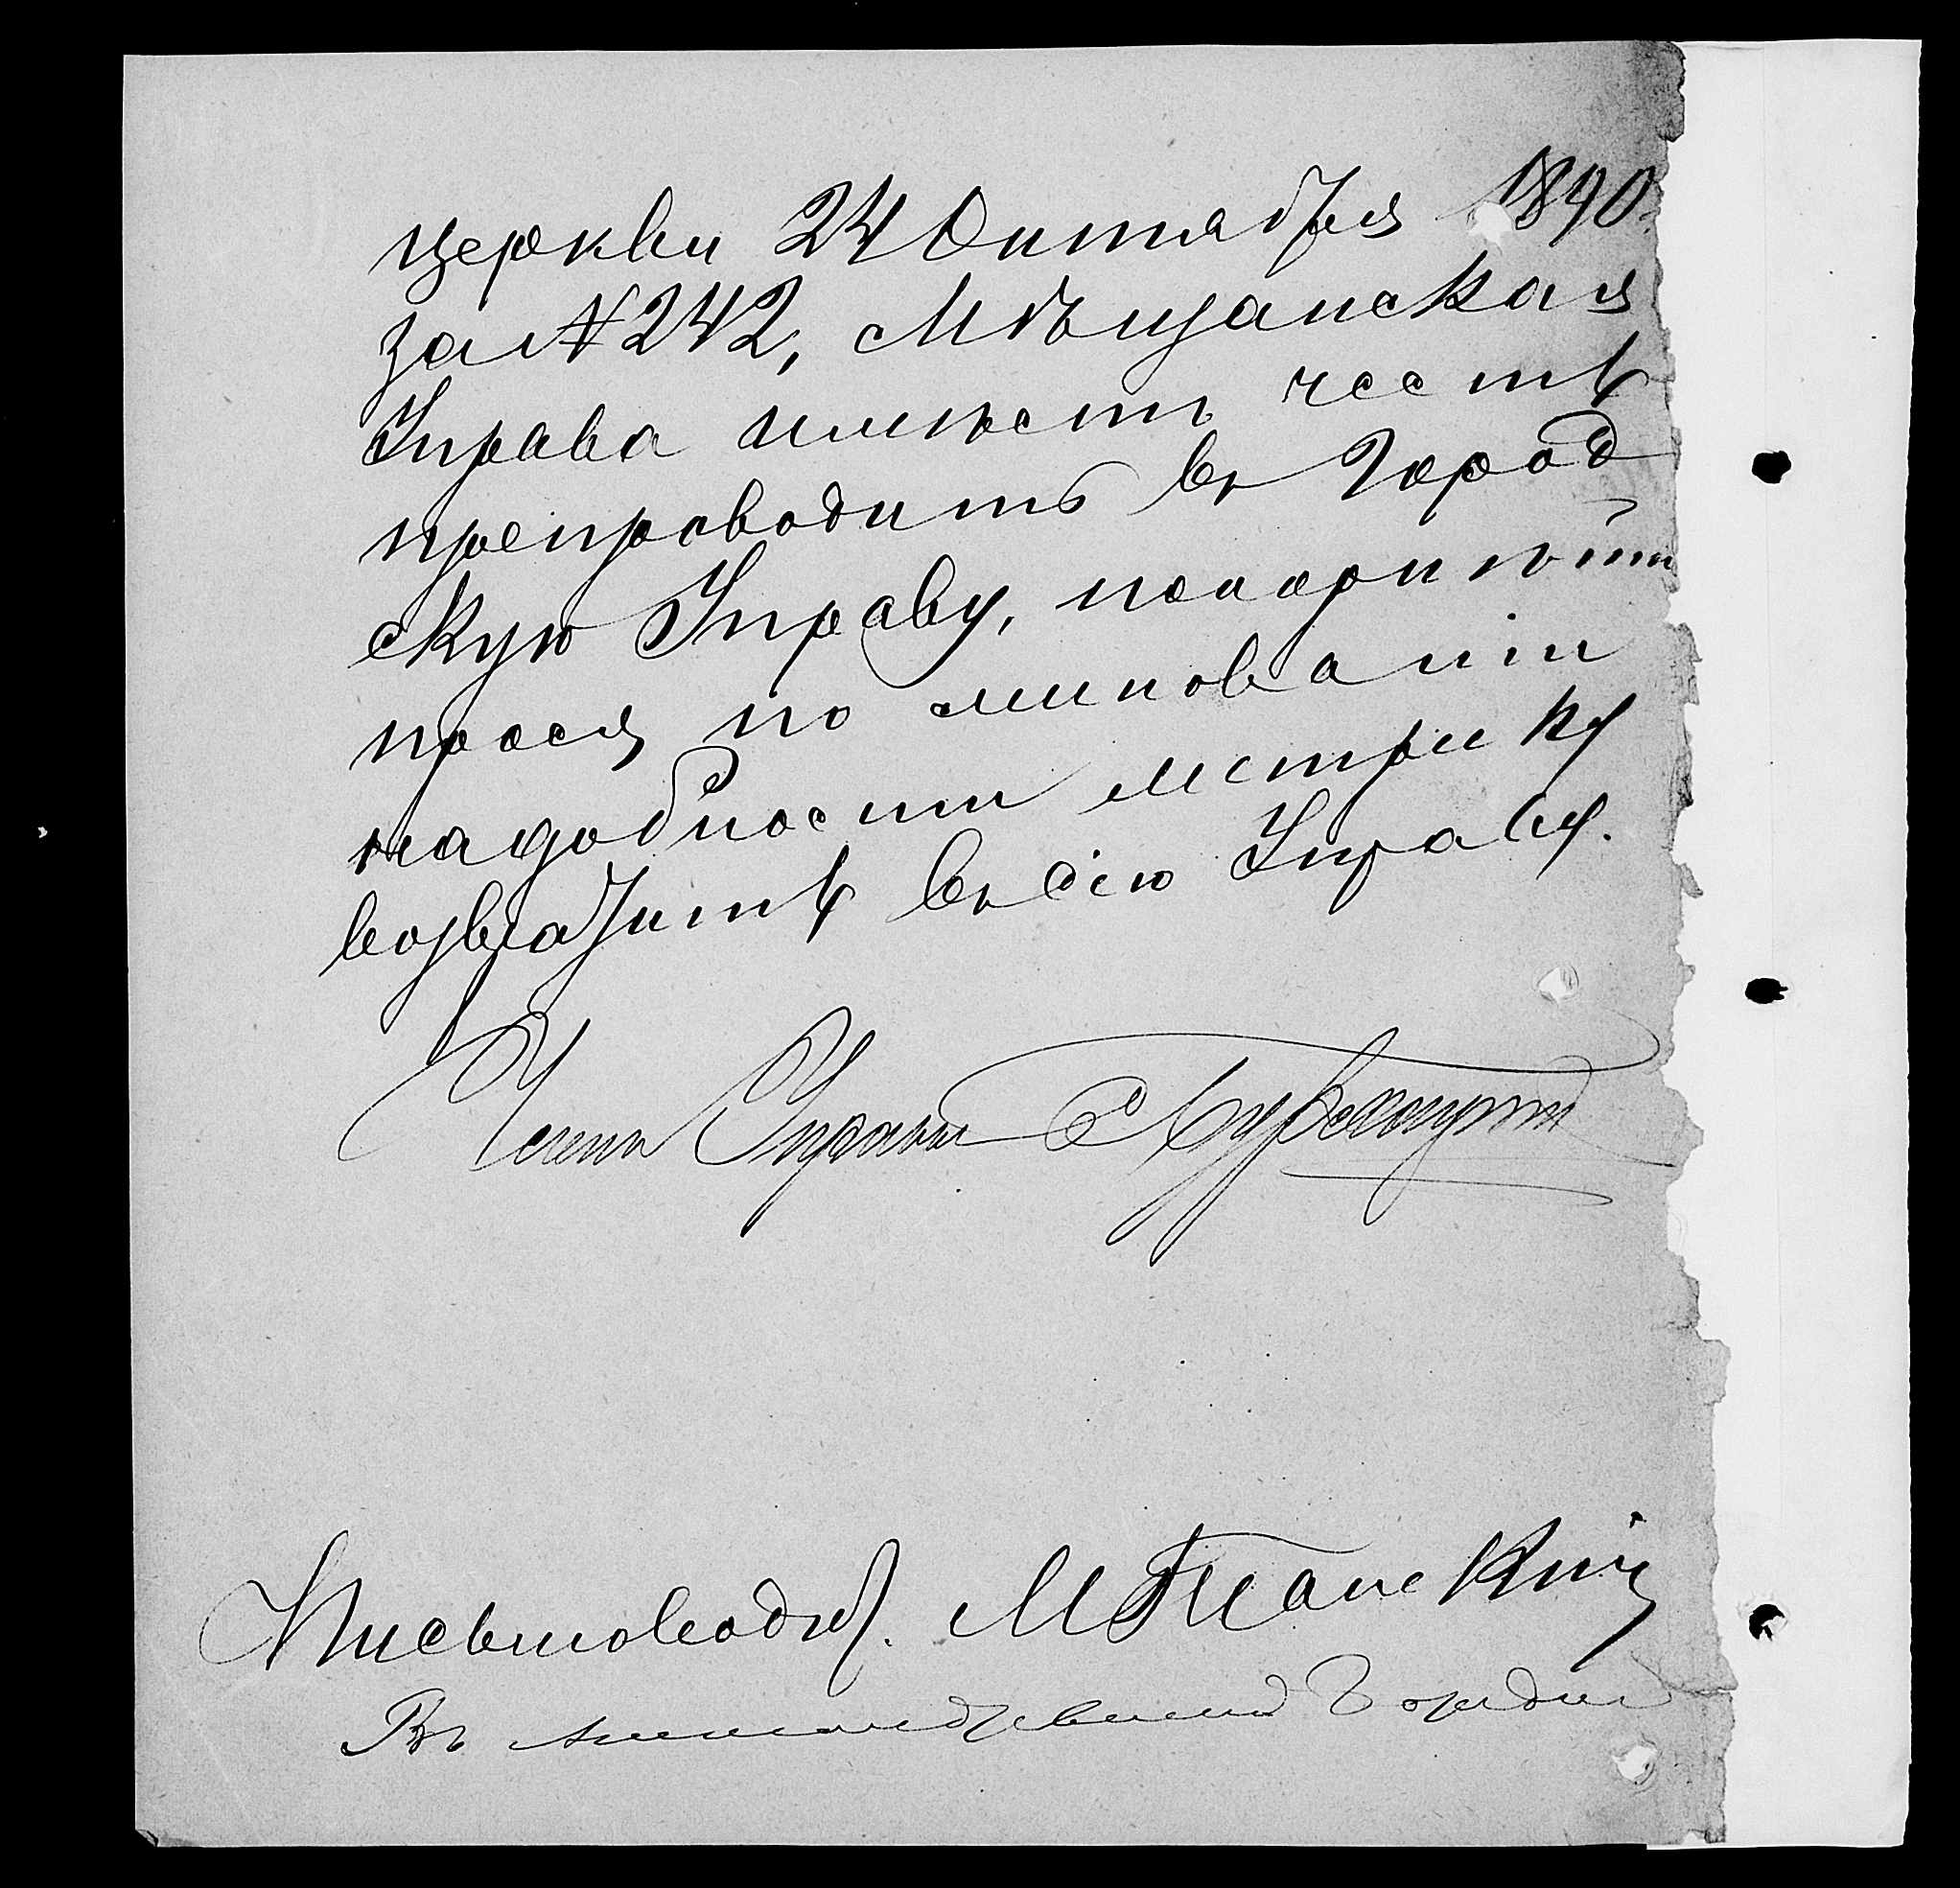 церкви 24 Октября 1890.
за № 242, Мѣщанская
Управа имѣетъ честь
препроводить въ Город
скую Управу, покорнѣйш
прося по минованіи
надобности метрику
возвратить въ сію Управу.
Членъ Управы
Письмоводит.
Въ